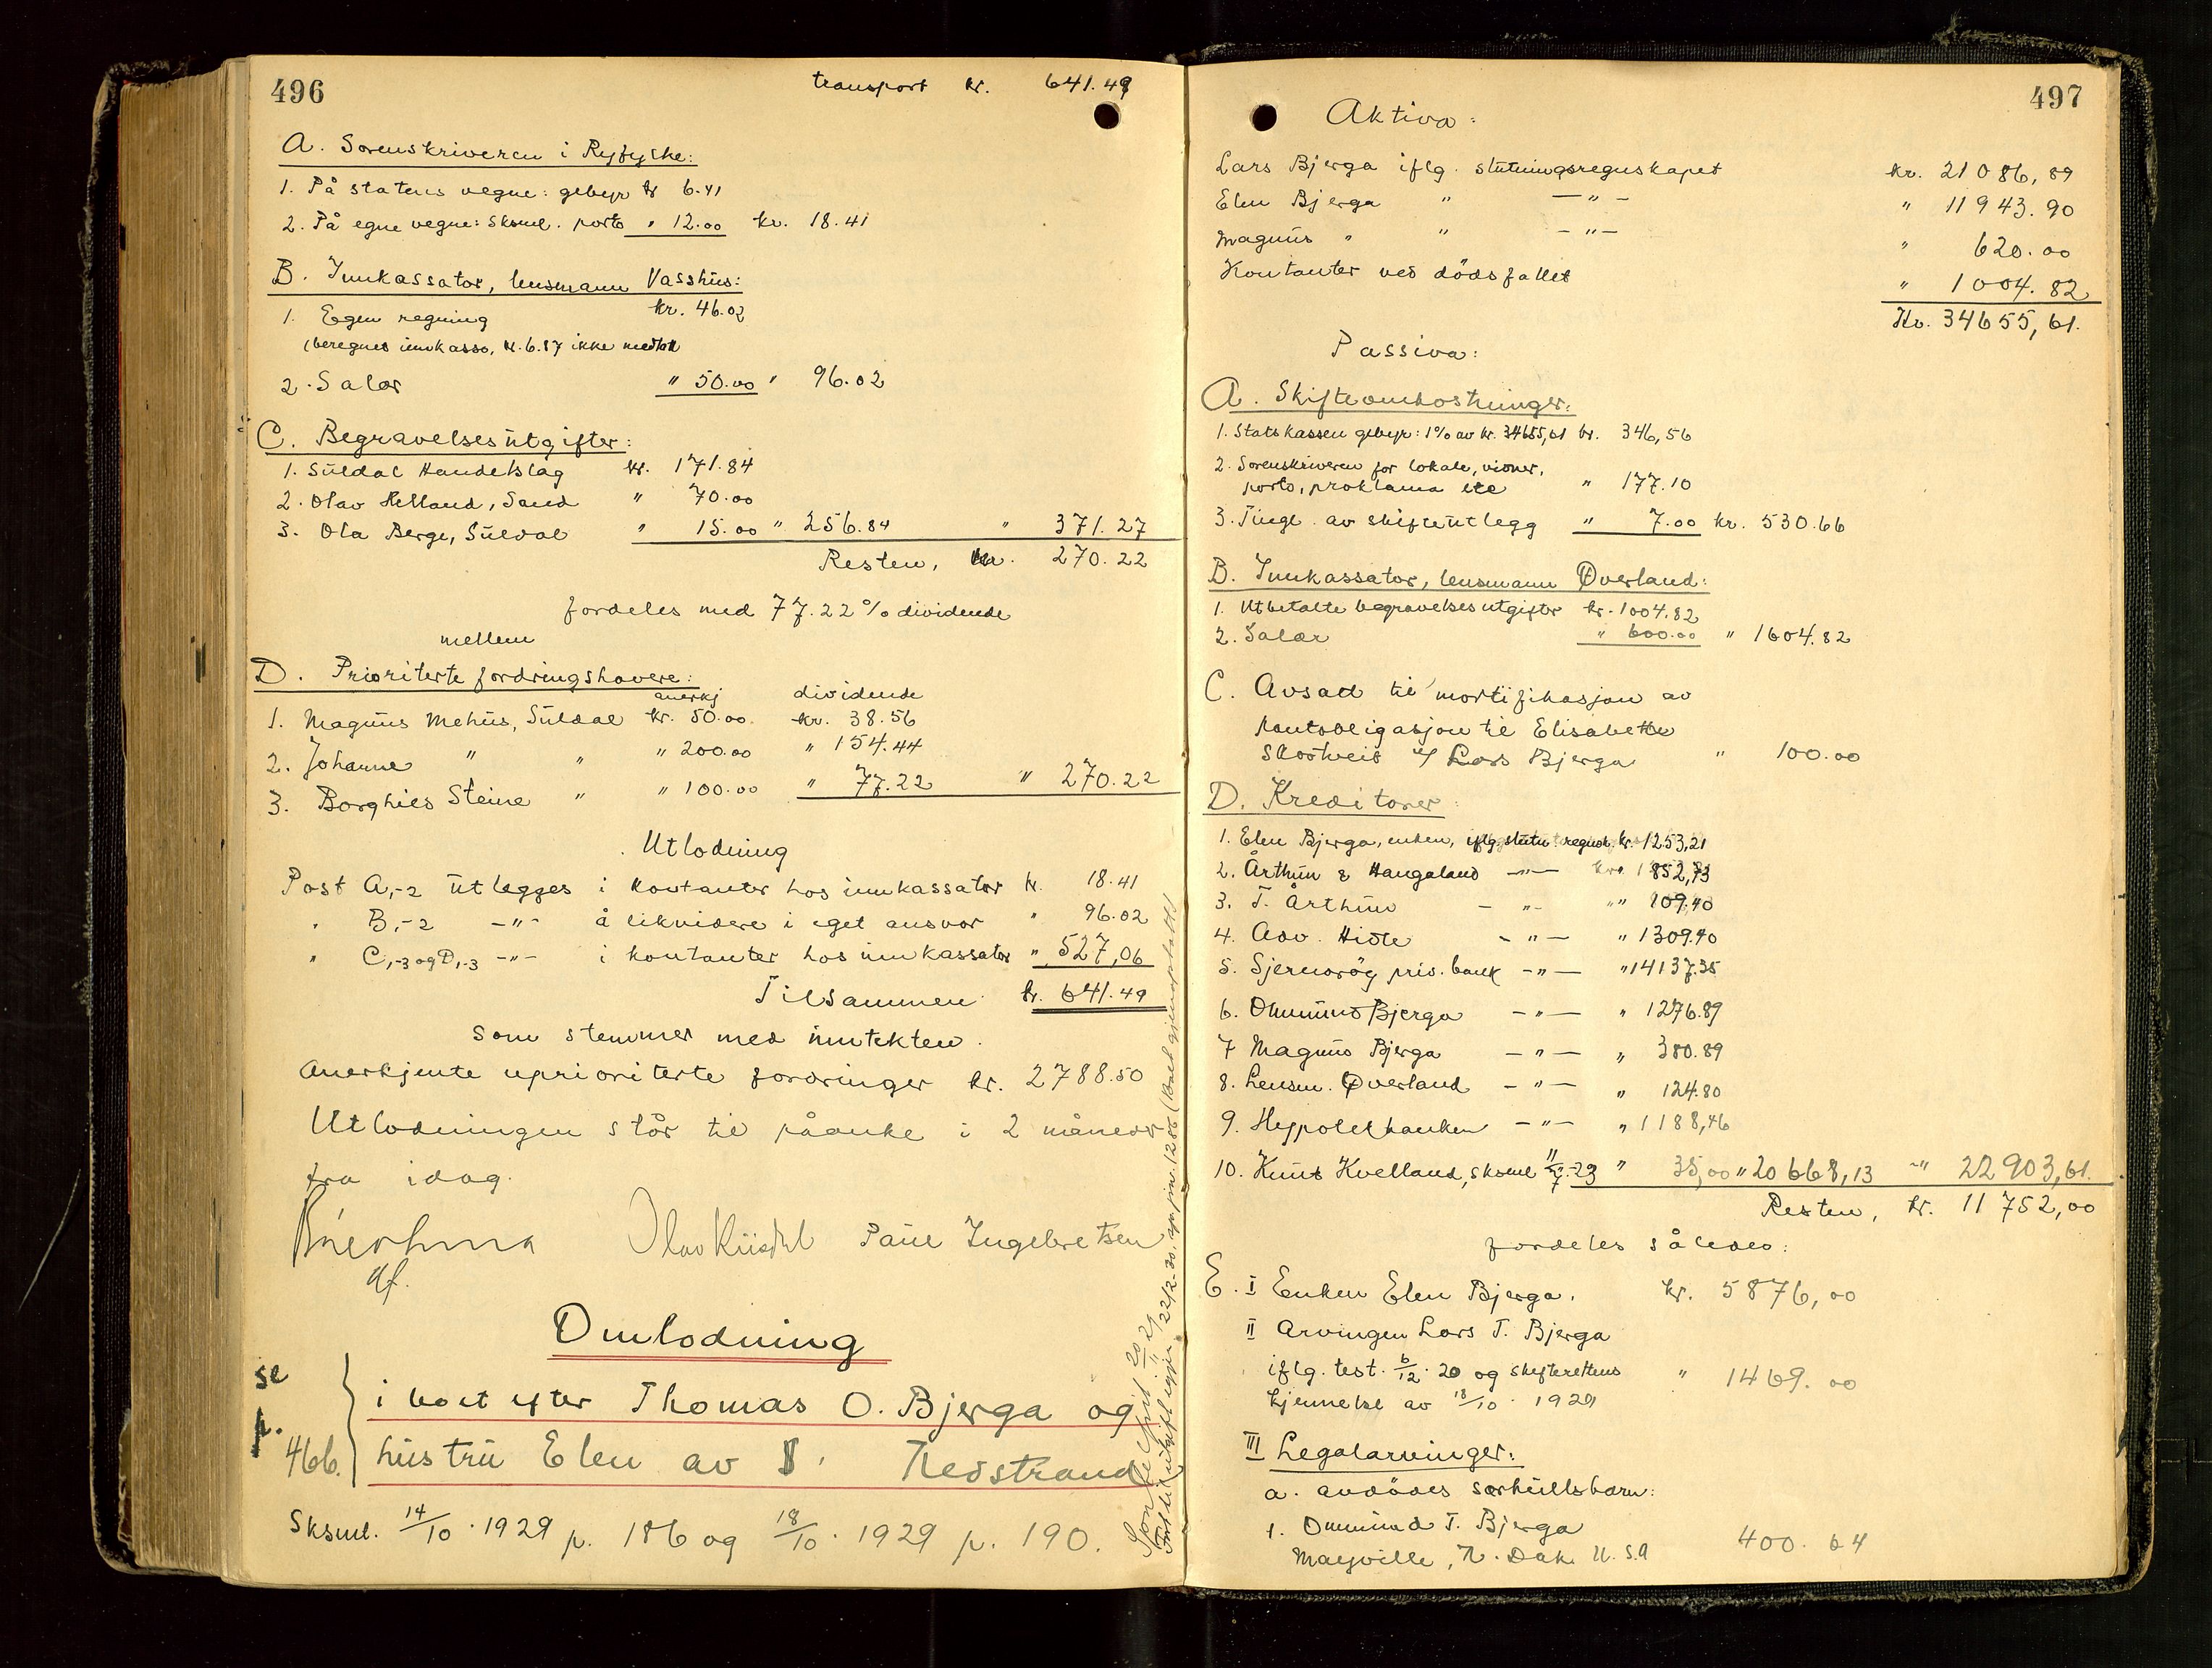 496
transport kr. 641.49
A. Sorenskriveren i Ryfylke:
1. På statens vegne: gebyr kr 6.41
2. På egne vegne: Sksml. porto " 12.00 kr. 18.41
B. Innkassator, lensmann Vasshus:
1. Egen regning kr. 46.02
(beregnet innkasso, kr. 6.87 ikke medtatt
2. Salær " 50.00 " 96.02
C. Begravelsesutgifter:
1. Suldal Handelslag kr. 171.84
2. Olav Helland, Sand " 70.00
3. Ola Berge, Suldal " 15.00 " 256.84 " 371.27
Resten, kr. 270.22
fordeles med 77.22 % dividende
mellem
D. Prioriterte fordringshavere:
anerkj dividende
1. Magnus Mehus, Suldal kr. 50.00 kr. 38.56
2. Johanne " " " 200.00 " 154.44
3. Borghild Steine " " 100.00 " 77.22 " 270.22
Utlodning
Post A,-2 utlegges i kontanter hos innkassator kr. 18.41
" B,-2 -"- å likvidere i eget ansvar " 96.02
" C,-3 og D,-3 -"- i kontanter hos innkassator " 527,06
Tilsammen kr. 641.49
som stemmer med inntekten.
Anerkjente uprioriterte fordringer kr. 2788.50
Utlodningen står til påanke i 2 måneder
fra idag.
Olav Paul Ingebretsen
Omlodning
se
p.
466.
i boet efter Thomas O. Bjerga og
hustru Elen av Nedstrand
Sksml. 14/10. 1929 p. 186 og 18/10. 1929 p. 190.
497
Aktiva:
Lars Bjerga iflg. slutningsregnskapet kr. 21086,89
Elen Bjerga " -"- " 11943.90
Magnus " " -"- " 620.00
Kontanter ved dödsfallet " 1004.82
Kr. 34655,61.
Passiva:
A. Skifteomkostninger:
1. Statskassen gebyr: 1% av kr. 34655,61 kr. 346,56
2. Sorenskriveren for lokale, vidner,
porto, proklama etc " 177.10
3. Tingl. av skifteutlegg " 7.00 kr. 530.66
B. Innkassator, lensmann Øverland:
1. Utbetalte begravelsesutgifter kr. 1004.82
2. Salær " 600.00 " 1604.82
C. Avsatt til mortifikasjon av
pantobligasjon til Elisabette
Lars Bjerga " 100.00
D. Kreditorer:
1. Elen Bjerga, enken, iflg. slutn. regnsk. kr. 1253,21
2. Årthun & Haugaland -"- kr. 852,73
3. T. Årthun -"- " 109,40
4. Adv. Hidle -"- " 1309.40
5. Sjernarøy priv. bank -"- " 14137.35
6. Ommund Bjerga -"- " 1276.89
7 Magnus Bjerga -"- " 380.89
8. Lensm. Øverland -"- " 124.80
9. Hypotekbanken -"- " 1188,46
10. Knut Kvelland, sksml " 35,00 " 20668,13 -" 22903,61.
Resten, kr. 11752,00
fordeles således:
E. I Enken Elen Bjerga. kr. 5876,00
II Arvingen Lars T. Bjerga
iflg. test. 6/12. 20 og skifterettens " 1469.00
kjennelse av 18/10. 1929
III Legalarvinger:
a. avdödes særkullsbarn:
1. Ommund T. Bjerga
Mayville, N. Dak. U.S.A 400.64